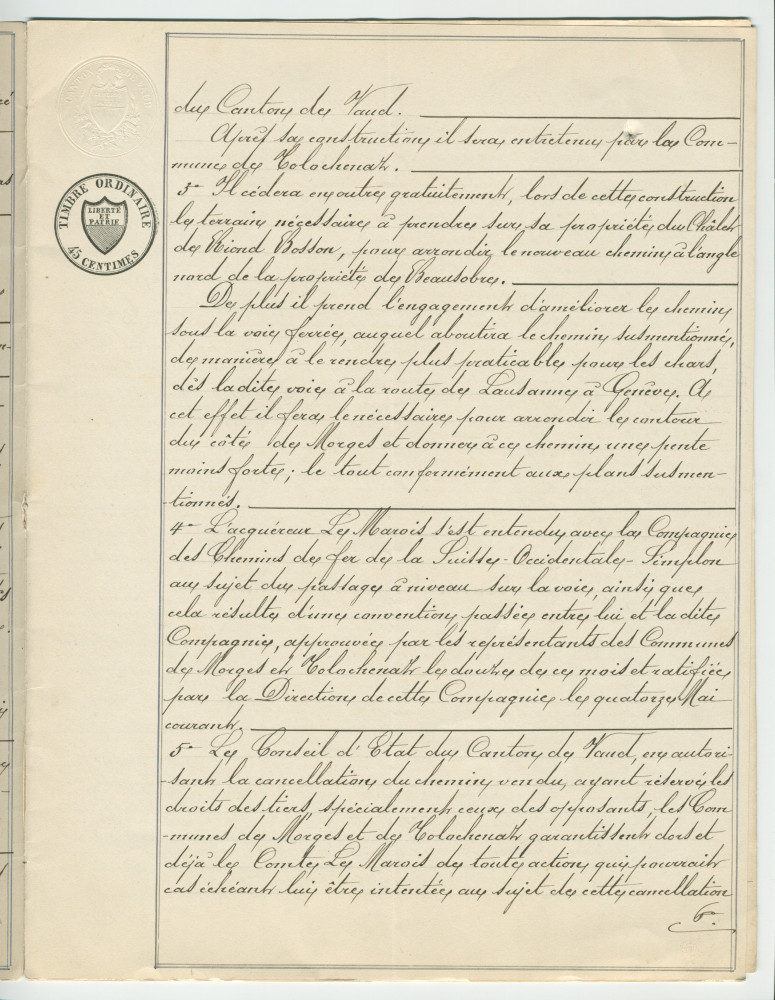 TIMBRE ORDINAIRE
LIBERTÉ
ET
PATRIE
45 CENTIMES
du Canton de Vaud.
Après sa construction il sera entretenu par la Com-
mune de Tolochenaz.
3° Il cédera en outre gratuitement, lors de cette construction
le terrain nécessaire à prendre sur sa propriété du Châlet
de Riond Bosson, pour arrondir le nouveau chemin à l'angle
nord de la propriété de Beausobre.
De plus il prend l'engagement d'améliorer le chemin
sous la voie ferrée, auquel aboutira le chemin susmentionné,
de manière à le rendre plus praticable pour les chars,
dès la dite voie à la route de Lausanne à Genève. A
cet effet il fera le nécessaire pour arrondir le contour
du côté de Morges et donner à ce chemin une pente
moins forte; le tout conformément aux plans susmen-
tionnés.
4° L'acquéreur Le Marois s'est entendu avec la Compagnie
des Chemins de fer de la Suisse-Occidentale-Simplon
au sujet du passage à niveau sur la voie, ainsi que
cela résulte d'une convention passée entre lui et la dite
Compagnie, approuvée par les représentants des Communes
de Morges et Tolochenaz le douze de ce mois et ratifiée
par la Direction de cette Compagnie le quatorze Mai
courant.
5° Le Conseil d'Etat du Canton de Vaud, en autori-
-sant la cancellation du chemin vendu, ayant réservé les
droits des tiers, spécialement ceux des opposants, les Com
-munes de Morges et de Tolochenaz garantissent dors et
déjà le Comte Le Marois de toute action qui pourrait
cas échéant lui être intentée au sujet de cette cancellation
6°